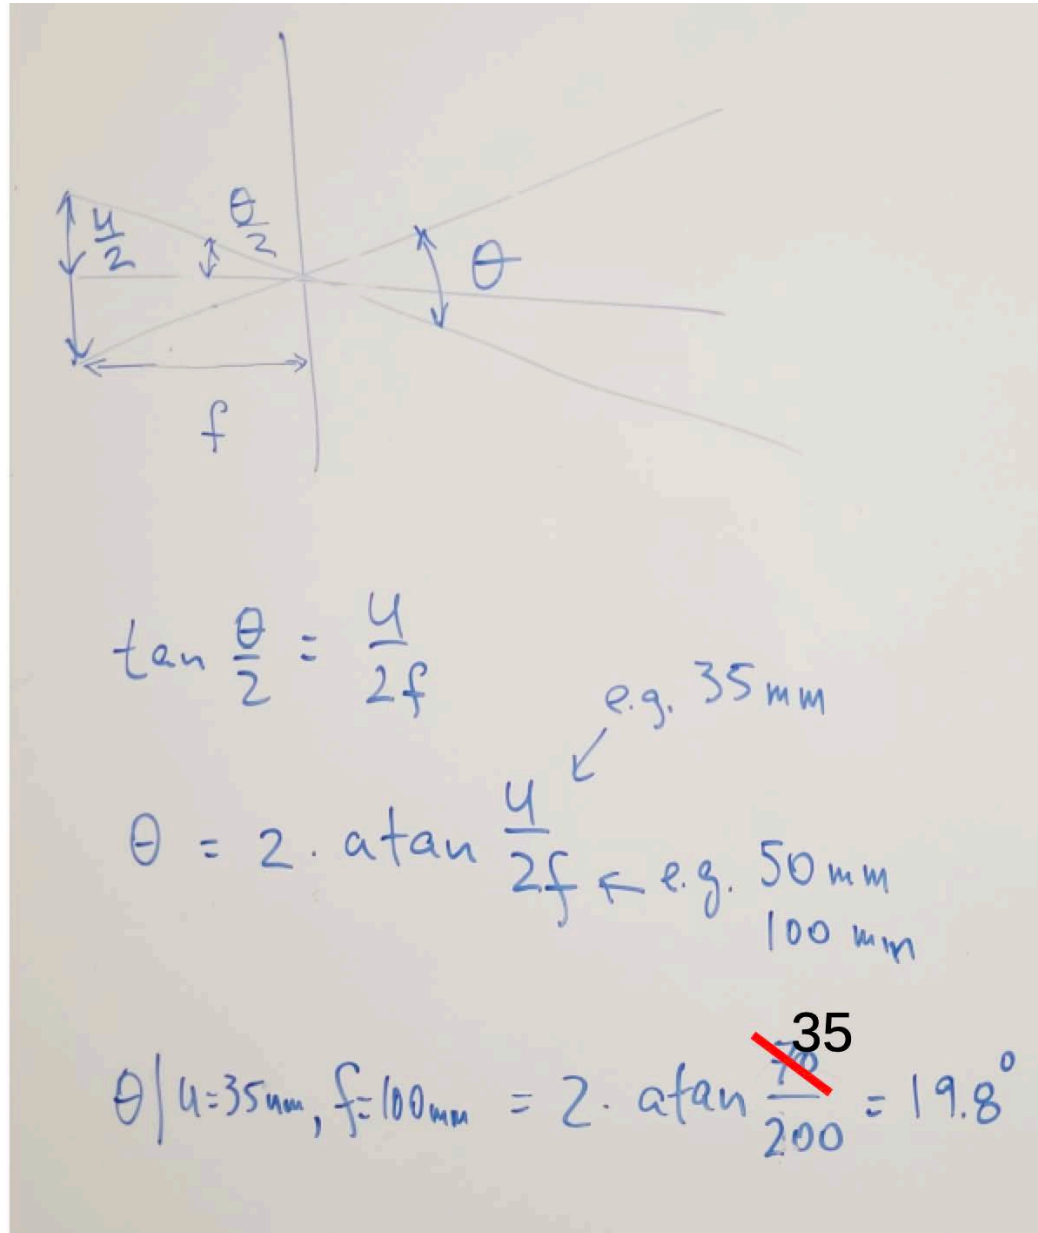 u/2
θ/2
θ
f
tan θ/2 = u/2f
e.g. 35mm
θ = 2 . atan u/2f ← e.g. 50mm
100 mm
35
θ | u=35mm, f=100mm = 2 . atan 70/200 = 19.8°